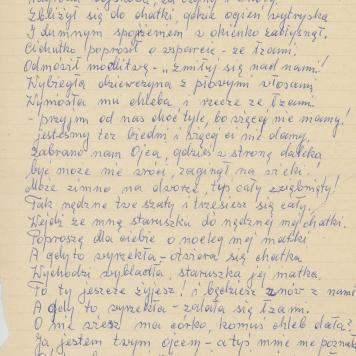 Zbliżył się do chatki, gdzie ogień wytryska
I dumnym spojrzeniem w okienko zabłysnął.
Cichutko poprosił o wsparcie - ze łzami
Odmówił modlitwę - „Zmiłuj się nad nami!
Wybiegła dziewczyna z płowym włosem
Wyniosła mu chleba, i rzecze ze łzami
- przyjm od nas choć tyle, bo więcej nie mamy!
jesteśmy też biedni i więcej ci nie damy.
Zabrano nam Ojca, gdzieś w stroną daleką
być może nie wróci, zaginął na wieki.
Może zimno na dworze, tyś cały zziębnięty!
Tak nędzne twe szaty i trzęsiesz się cały.
Wejdź ze mną staruszku do nędznej mej chatki.
Poproszę dla ciebie o nocleg mej matki
A gdy to wyrzekła - otwiera się chatka
Wychodzi wybladła staruszka jej matka.
To ty jeszcze żyjesz! i będziesz znów z nami
A gdy to wyrzekła - zalała się łzami.
O nie wiesz ma córko, komuś chleb dała?
Ja jestem twym ojcem - a tyś mnie nie poznała